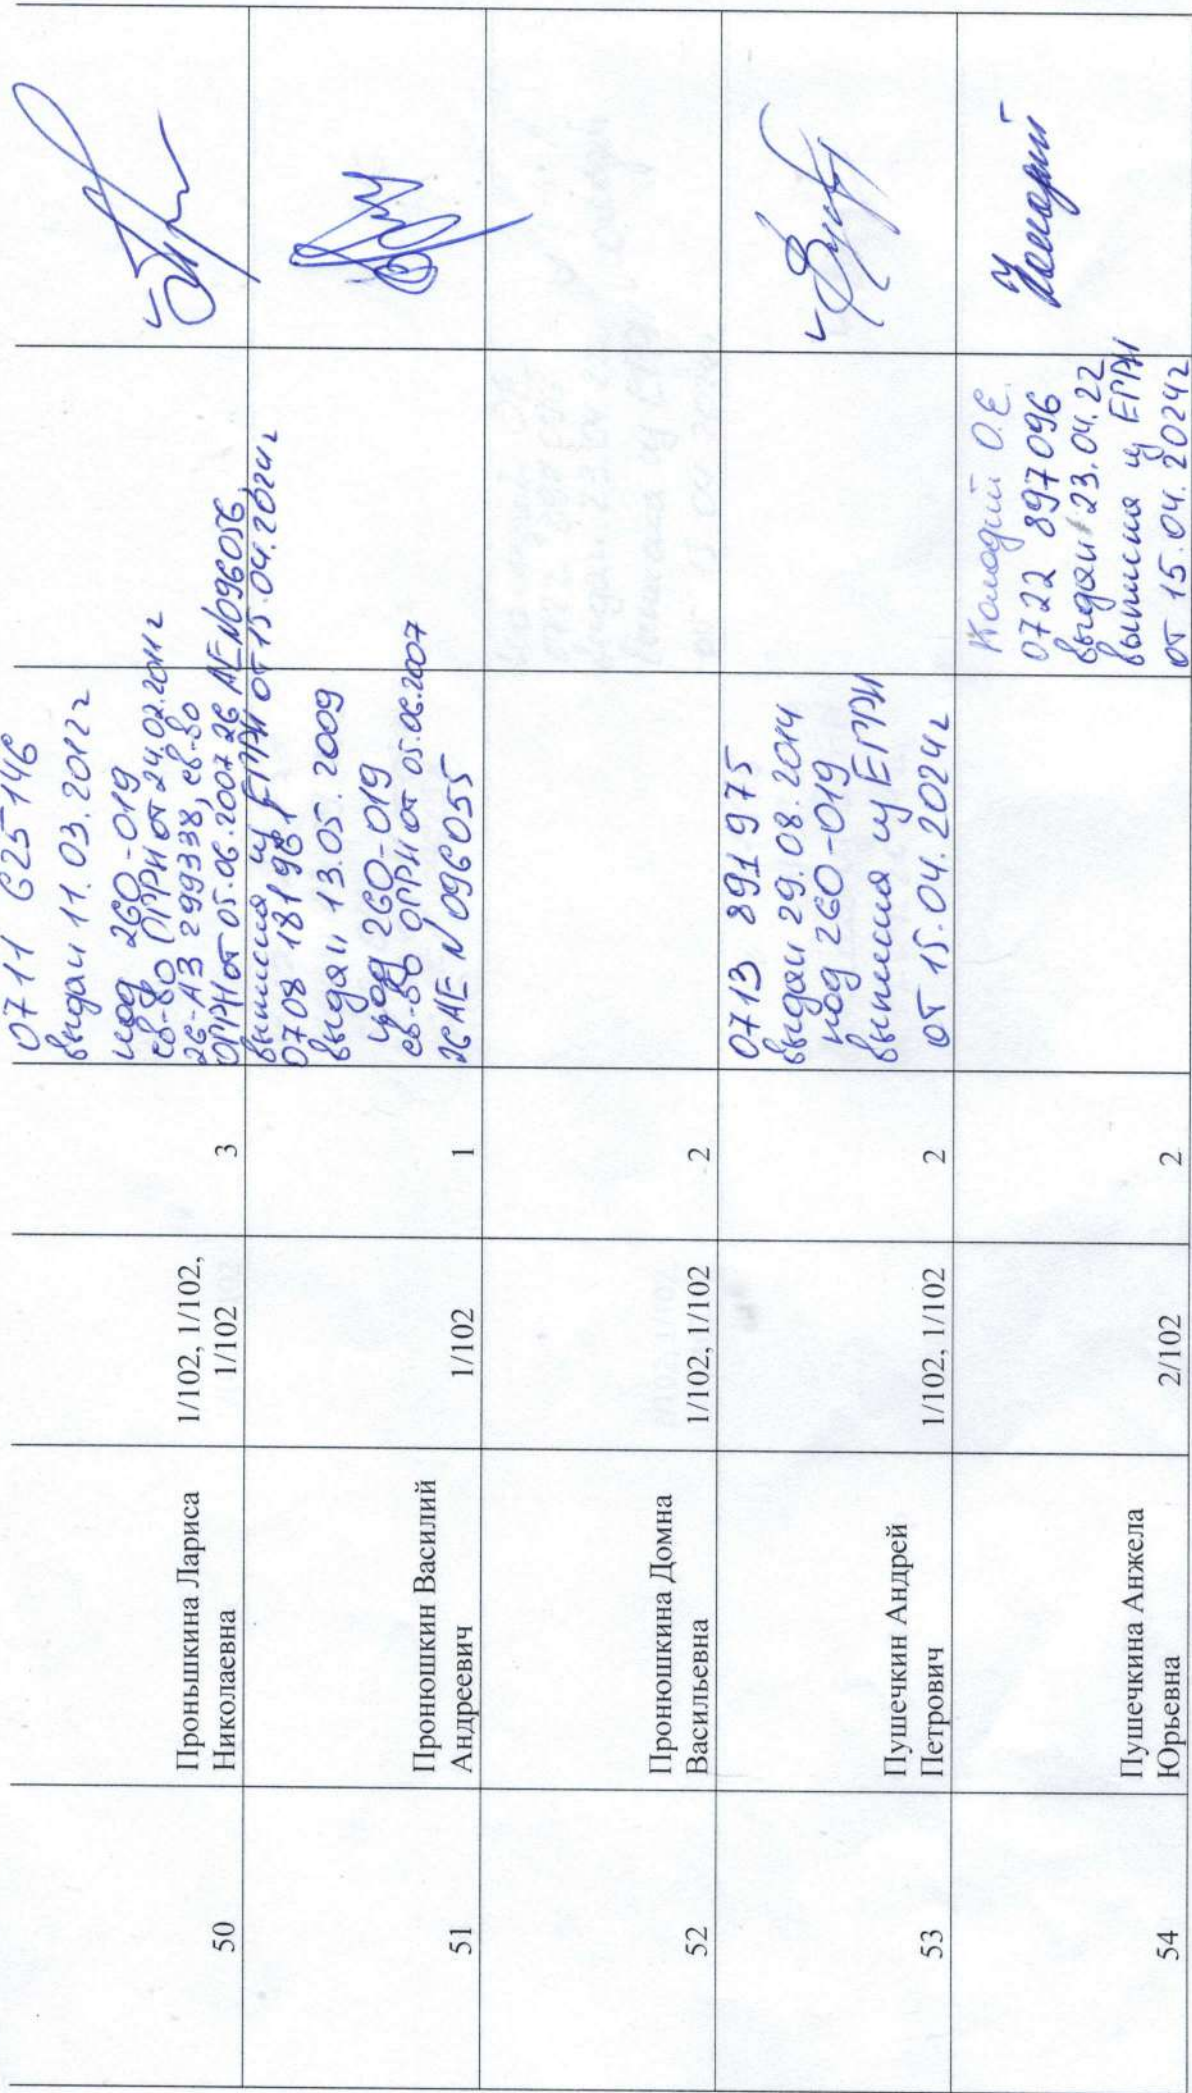 50
Проньшкина Лариса
Николаевна
1/102, 1/102,
1/102
3
0711 625146
выдан 11.03.2012г
код 260-019
св-во ОПРИ от 24.02.2011г
26-АЗ 299338, св-во
ОПРИ от 05.06.2007 26 АЕ N096056,
выписка из ЕГРН от 15.04.2024г
51
Пронюшкин Василий
Андреевич
1/102
1
0708 181981
выдан 13.05.2009
код 260-019
св-во ОПРИ от 05.06.2007
26 АЕ N 096055
52
Пронюшкина Домна
Васильевна
1/102, 1/102
2
53
Пушечкин Андрей
Петрович
1/102, 1/102
2
0713 891975
выдан 29.08.2014
код 260-019
выписка из ЕГРН
от 15.04.2024г
54
Пушечкина Анжела
Юрьевна
2/102
2
О.Е.
0722 897096
выдан 23.04.22
выписка из ЕГРН
от 15.04.2024г